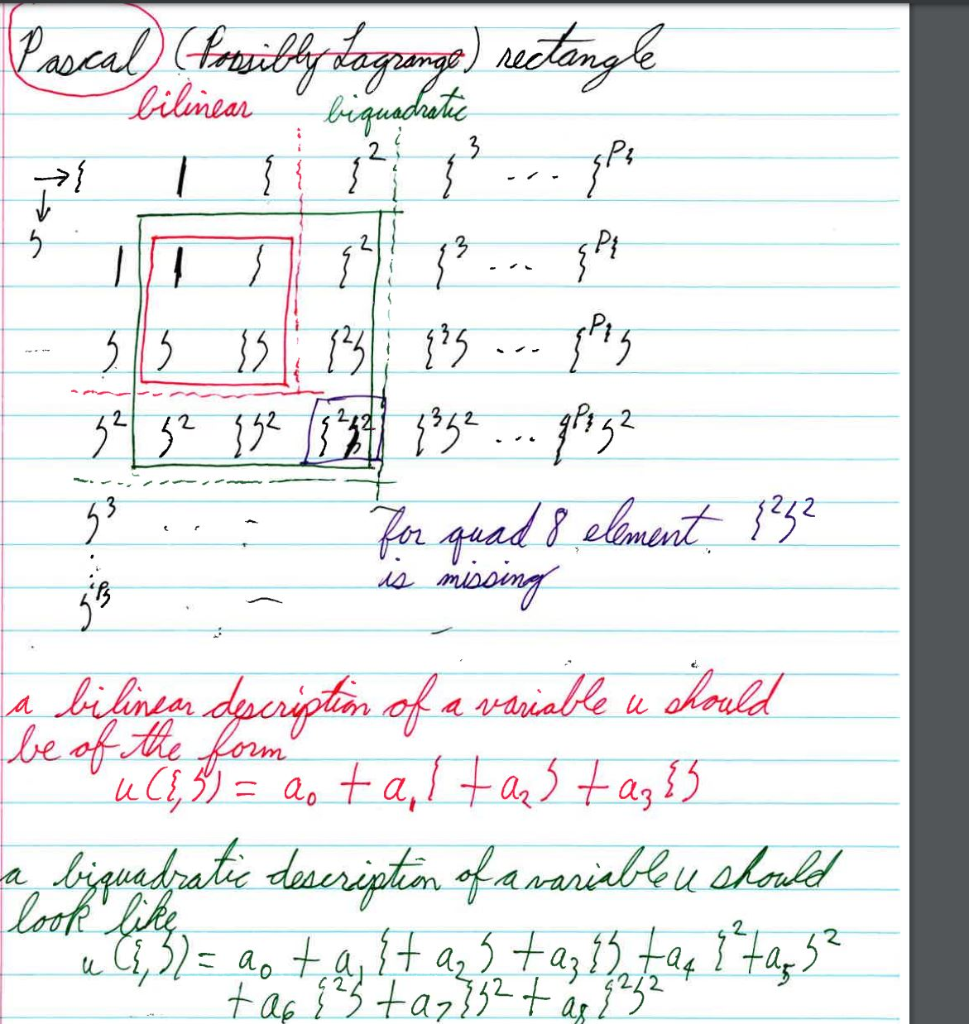 Pascal (Possibly Lagrange) rectangle
bilinear biquadratic
→ξ 1 ξ ξ² ξ³ ... ξ^Pξ
↓
ζ
1 1 ξ ξ² ξ³ ... ξ^Pξ
ζ ζ ξζ ξ²ζ ξ³ζ ... ξ^Pξ ζ
ζ² ζ² ξζ² ξ²ζ² ξ³ζ² ... ξ^Pξ ζ²
ζ³
for quad 8 element ξ²ζ²
is missing
ζ^Pζ
a bilinear description of a variable u should
be of the form
u(ξ,ζ) = a₀ + a₁ξ + a₂ζ + a₃ξζ
a biquadratic description of a variable u should
look like
u(ξ,ζ) = a₀ + a₁ξ + a₂ζ + a₃ξζ + a₄ξ² + a₅ζ²
+ a₆ξ²ζ + a₇ξζ² + a₈ξ²ζ²